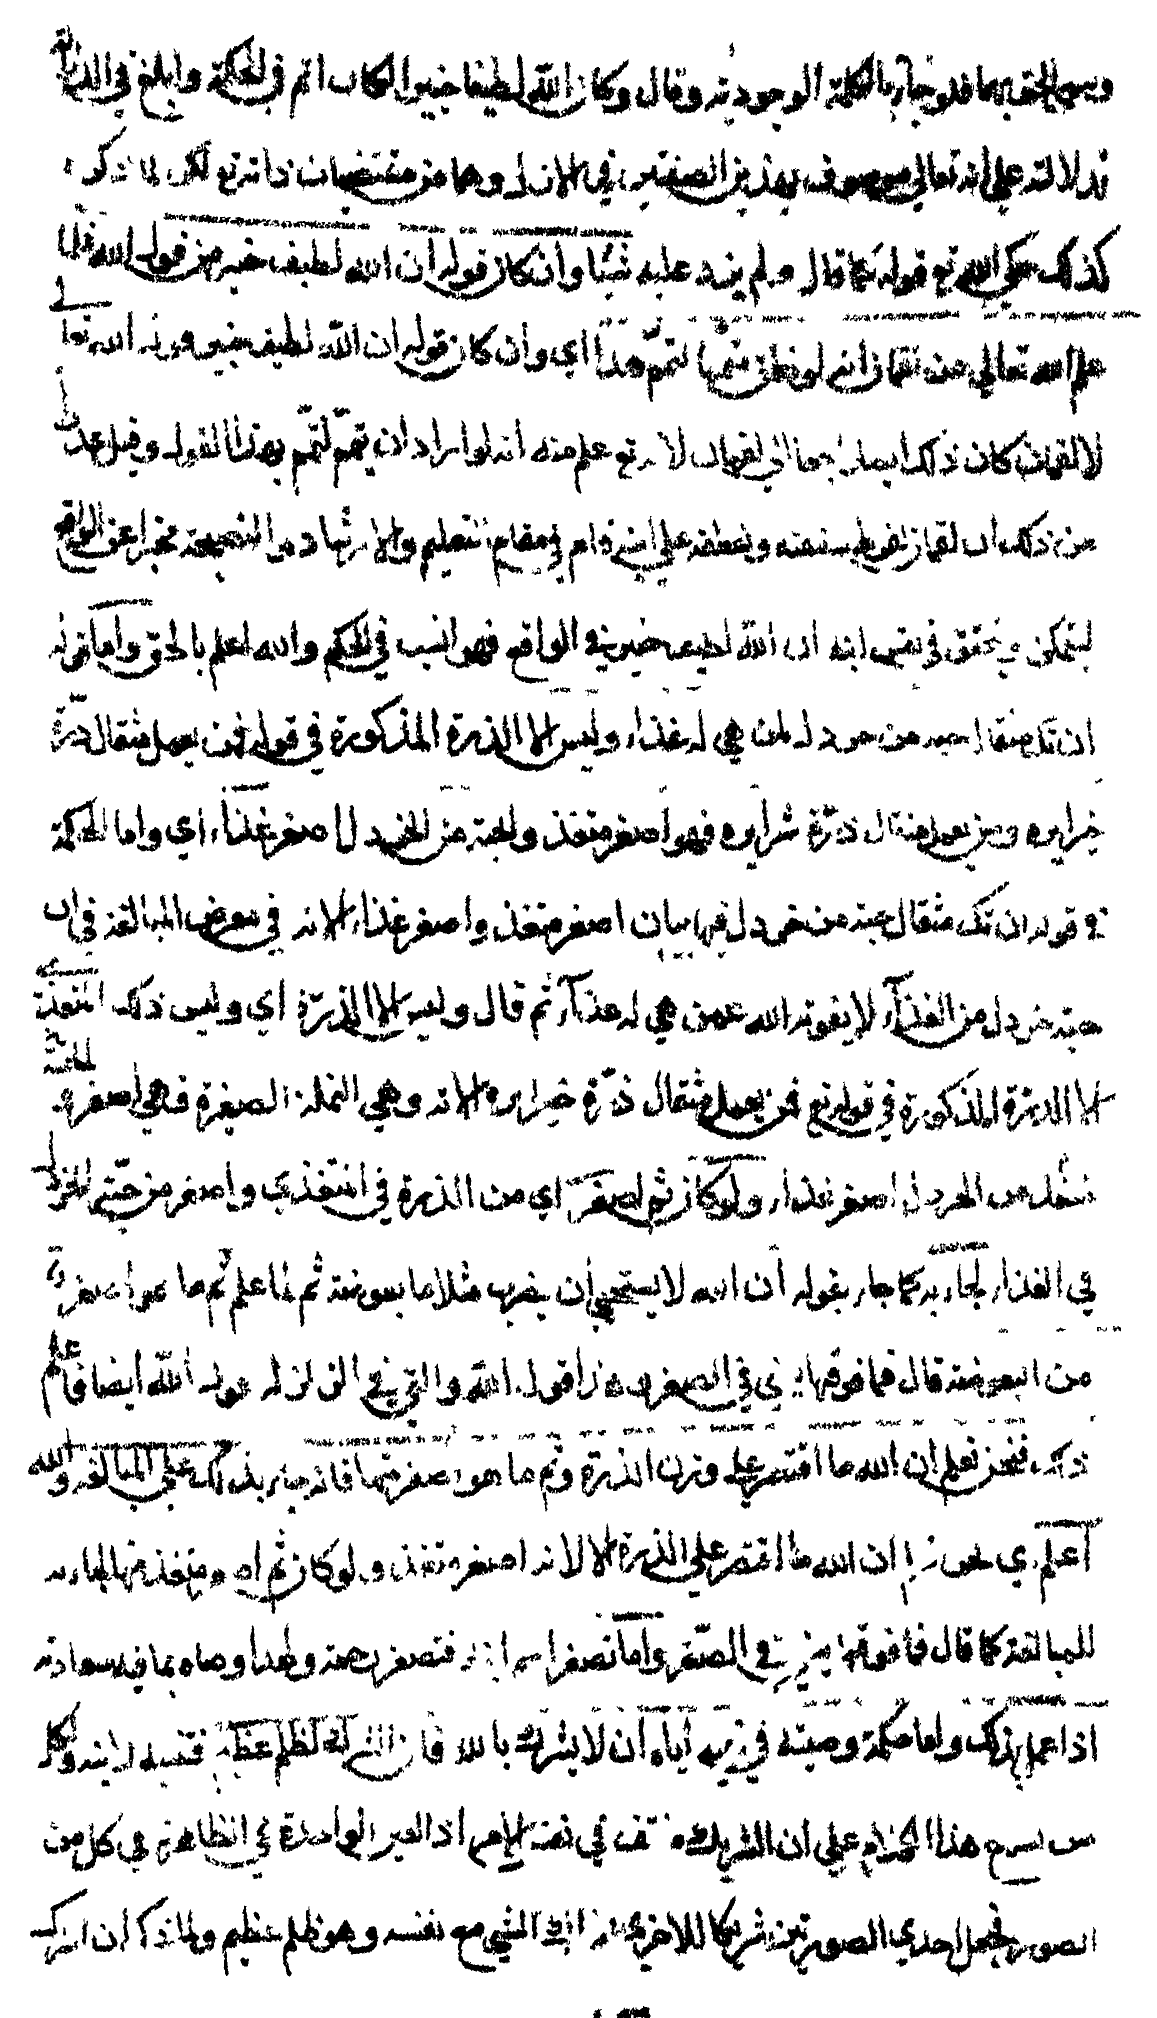 وبين الحق بهما فلو جاء بالكلمة الوجودية وقال وكان الله لطيفا خبيرا لكان اتم في الحكمة وابلغ في الدلالة
لدلالته على انه تعالى موصوف بهذين الصفتين في الازل وهما من مقتضيات ذاته تع لكن لما ذكر
كذلك حكى الله تع قوله كما قال ولم يزد عليه شيئا وان كان قوله ان الله لطيف خبير من قول الله فلما
علم الله تعالى من لقمان انه لو نطق متمما لتمم هذا اي وان كان قوله ان الله لطيف خبير من قول الله تعالى
لا لقمان كان ذلك ايضا راجعا الى لقمان لانه تع علم منه انه لو اراد ان يتمم لتمم بهذا القول وقيل عذر
من ذلك ان لقمان لفرط شفقته وتعطفه على ابنه قام في مقام التعليم والارشاد والنصيحة مخبرا عن الواقع
ليتمكن ويتحقق في نفس ابنه ان الله لطيف خبير في الواقع فهو انسب في الحكم والله اعلم بالحق واما قوله
ان تك مثقال حبة من خردل لمن هي له غذاء وليس الا الذرة المذكورة في قوله فمن يعمل مثقال ذرة
خيرا يره ومن يعمل مثقال ذرة شرا يره فهو اصغر متغذ والحبة من الخردل اصغر غذاء اي واما الحكمة
في قوله ان تك مثقال حبة من خردل فيها بيان اصغر متغذ واصغر غذاء لانه في معرض المبالغة في ان
حبة خردل من الغذاء لا يفوته الله عمن هي له غذاء ثم قال وليس الا الذرة اي وليس ذلك المتغذي
الا الذرة المذكورة في قوله تع فمن يعمل مثقال ذرة خيرا يره لانه وهي النملة الصغيرة فهي اصغر
متغذ من الخردل اصغر غذاء ولو كان ثم اصغر اي من الذرة في المتغذي واصغر من حبة الخردل
في الغذاء لجاء به كما جاء بقوله ان الله لا يستحيي ان يضرب مثلا ما بعوضة ثم لما علم ثم ما هو اصغر
من البعوضة قال فما فوقها يعني في الصغر وهذا قول الله والتي في الزلزلة قول الله ايضا فاعلم
ذلك فنحن نعلم ان الله ما اقتصر على وزن الذرة وثم ما هو اصغر منها فانه جاء بذلك على المبالغة والله
اعلم اي نحن نعلم ان الله ما اقتصر على الذرة الا لانه اصغر متغذ ولو كان ثم اصغر متغذ منها لجاء به
للمبالغة كما قال فما فوقها يعني في الصغر واما تصغير اسم ابنه فتصغير رحمة ولهذا وصاه بما فيه سعادته
اذا عمل بذلك واما حكمة وصيته في نهيه اياه ان لا تشرك بالله فان الشرك لظلم عظيم فتنبيه لابنه ولكل
من يسمع هذا الكلام على ان الشريك منتف في نفس الامر اذ العين الواحدة هي الظاهرة في كل من
الصور فجعل احدى الصورتين شريكا للاخرى اشراك الشيء مع نفسه وهو ظلم عظيم ولما ذكر ان اشرك